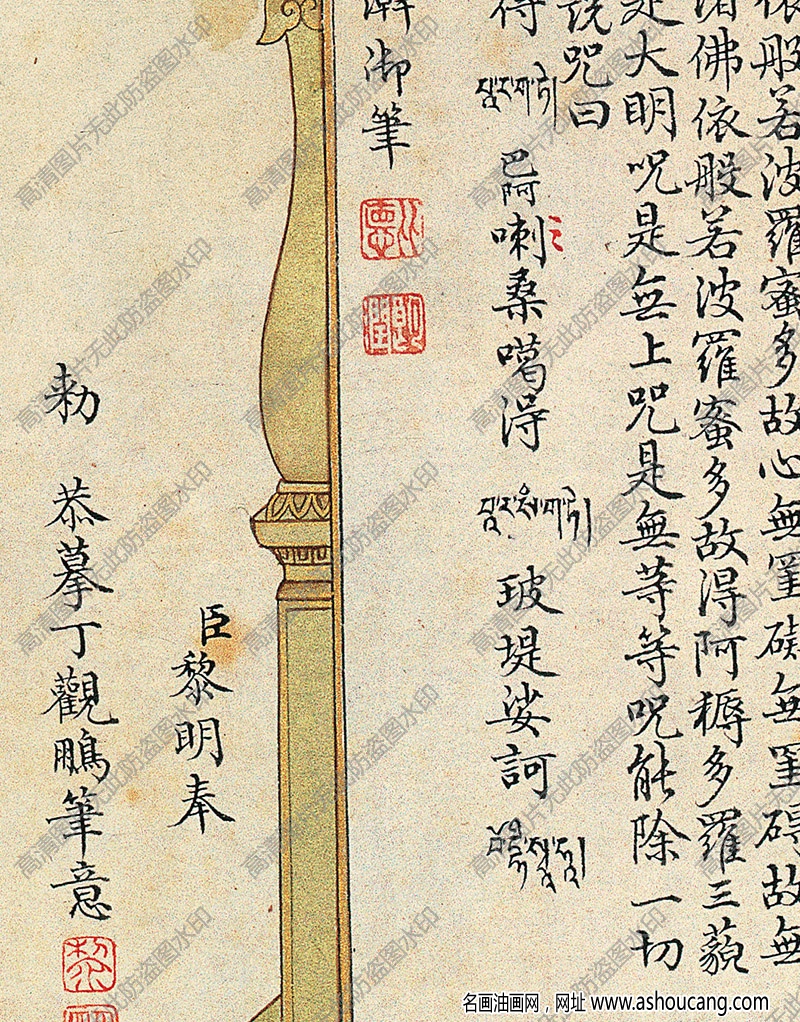 依般若波羅蜜多故心無罣礙無罣碍故無
諸佛依般若波羅蜜多故得阿耨多羅三藐
是大明呪是無上呪是無等等呪能除一切
説咒曰
得
巴阿喇桑噶得
玻堤娑訶
瀚御筆
臣黎明奉
勑
恭摹丁觀鵬筆意
高清图片无此防盗图水印
名画油画网，网址 www.ashoucang.com